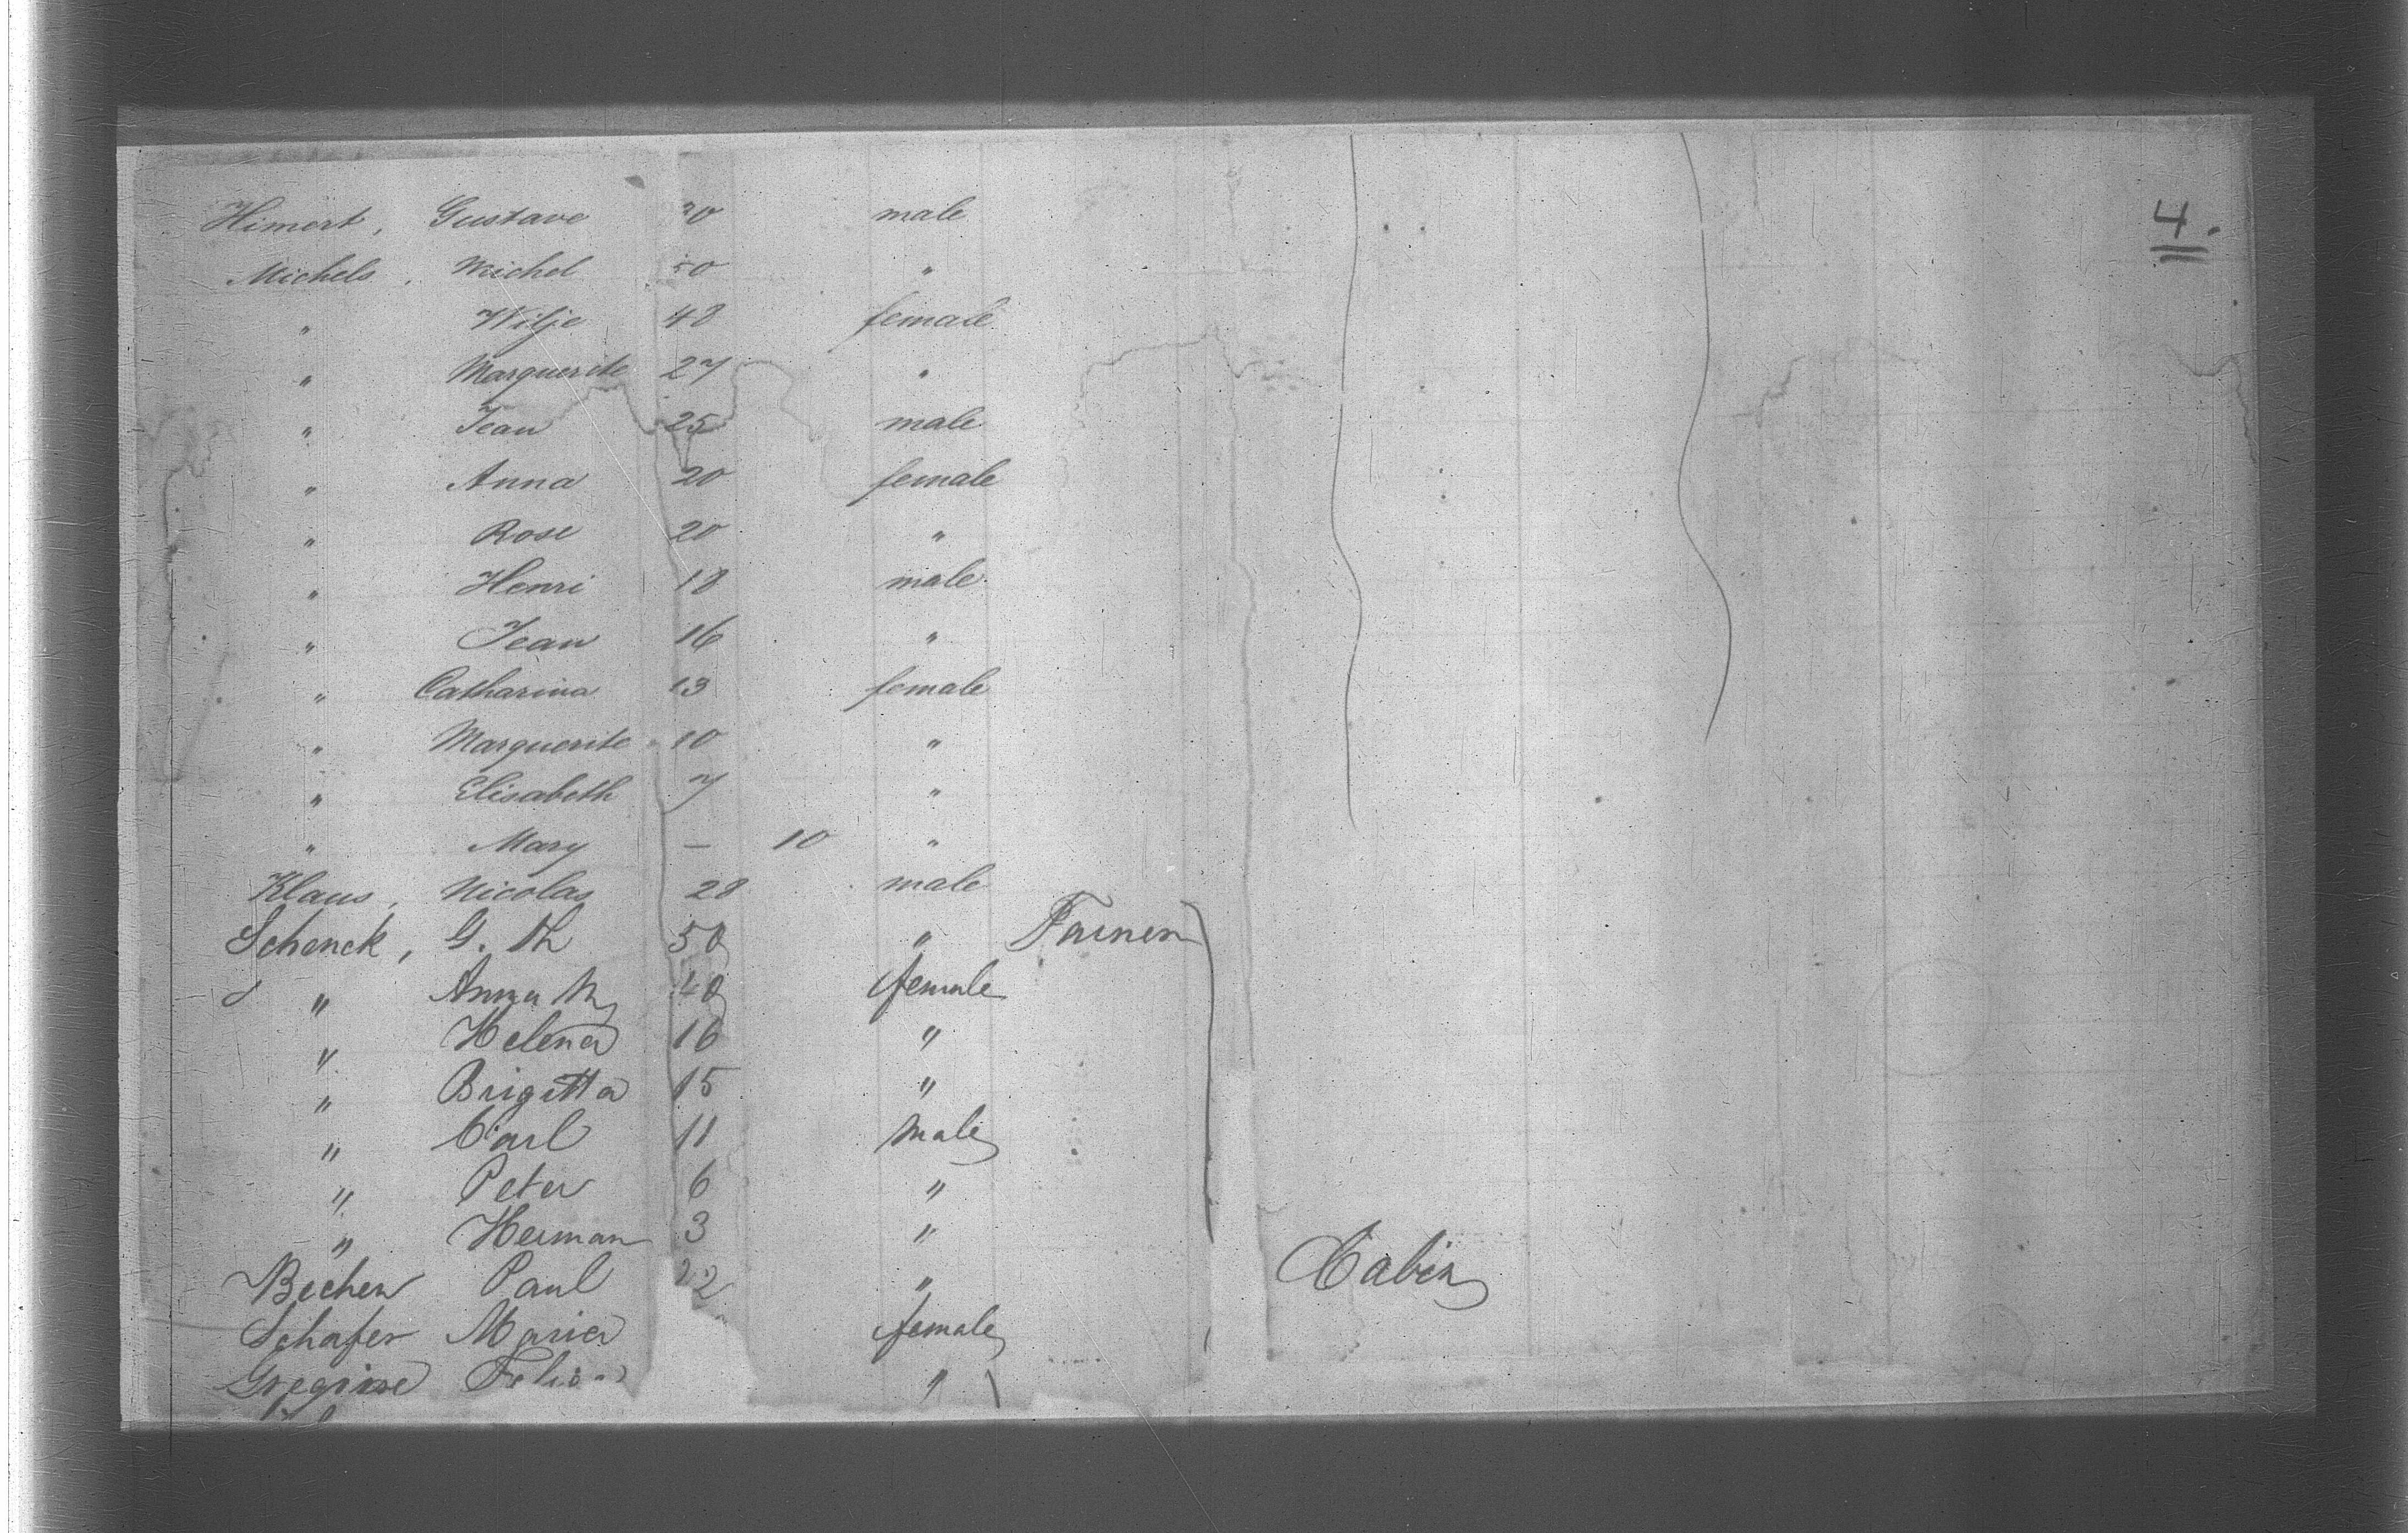 4.
Himert, Gustave 30 male
Michels, Michel 50 "
" Wilje 48 female
" Marguerite 27 "
" Jean 25 male
" Anna 20 female
" Rose 20 "
" Henri 18 male
" Jean 16 "
" Catharina 13 female
" Marguerite 10 "
" Elisabeth 7 "
" Mary — 10 "
Klaus, Nicolas 28 male
Schenck, G. Th 50 " Farmer
" Anna M 40 female
" Helena 16 "
" Brigitta 15 "
" Carl 11 male
" Peter 6 "
" Herman 3 "
Becher Paul 22 " Cabin
Schafer Maria female
"